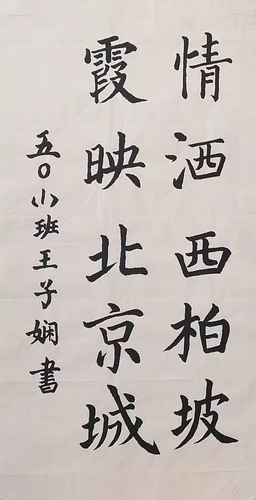 情洒西柏坡
霞映北京城
五〇小班王子娴书